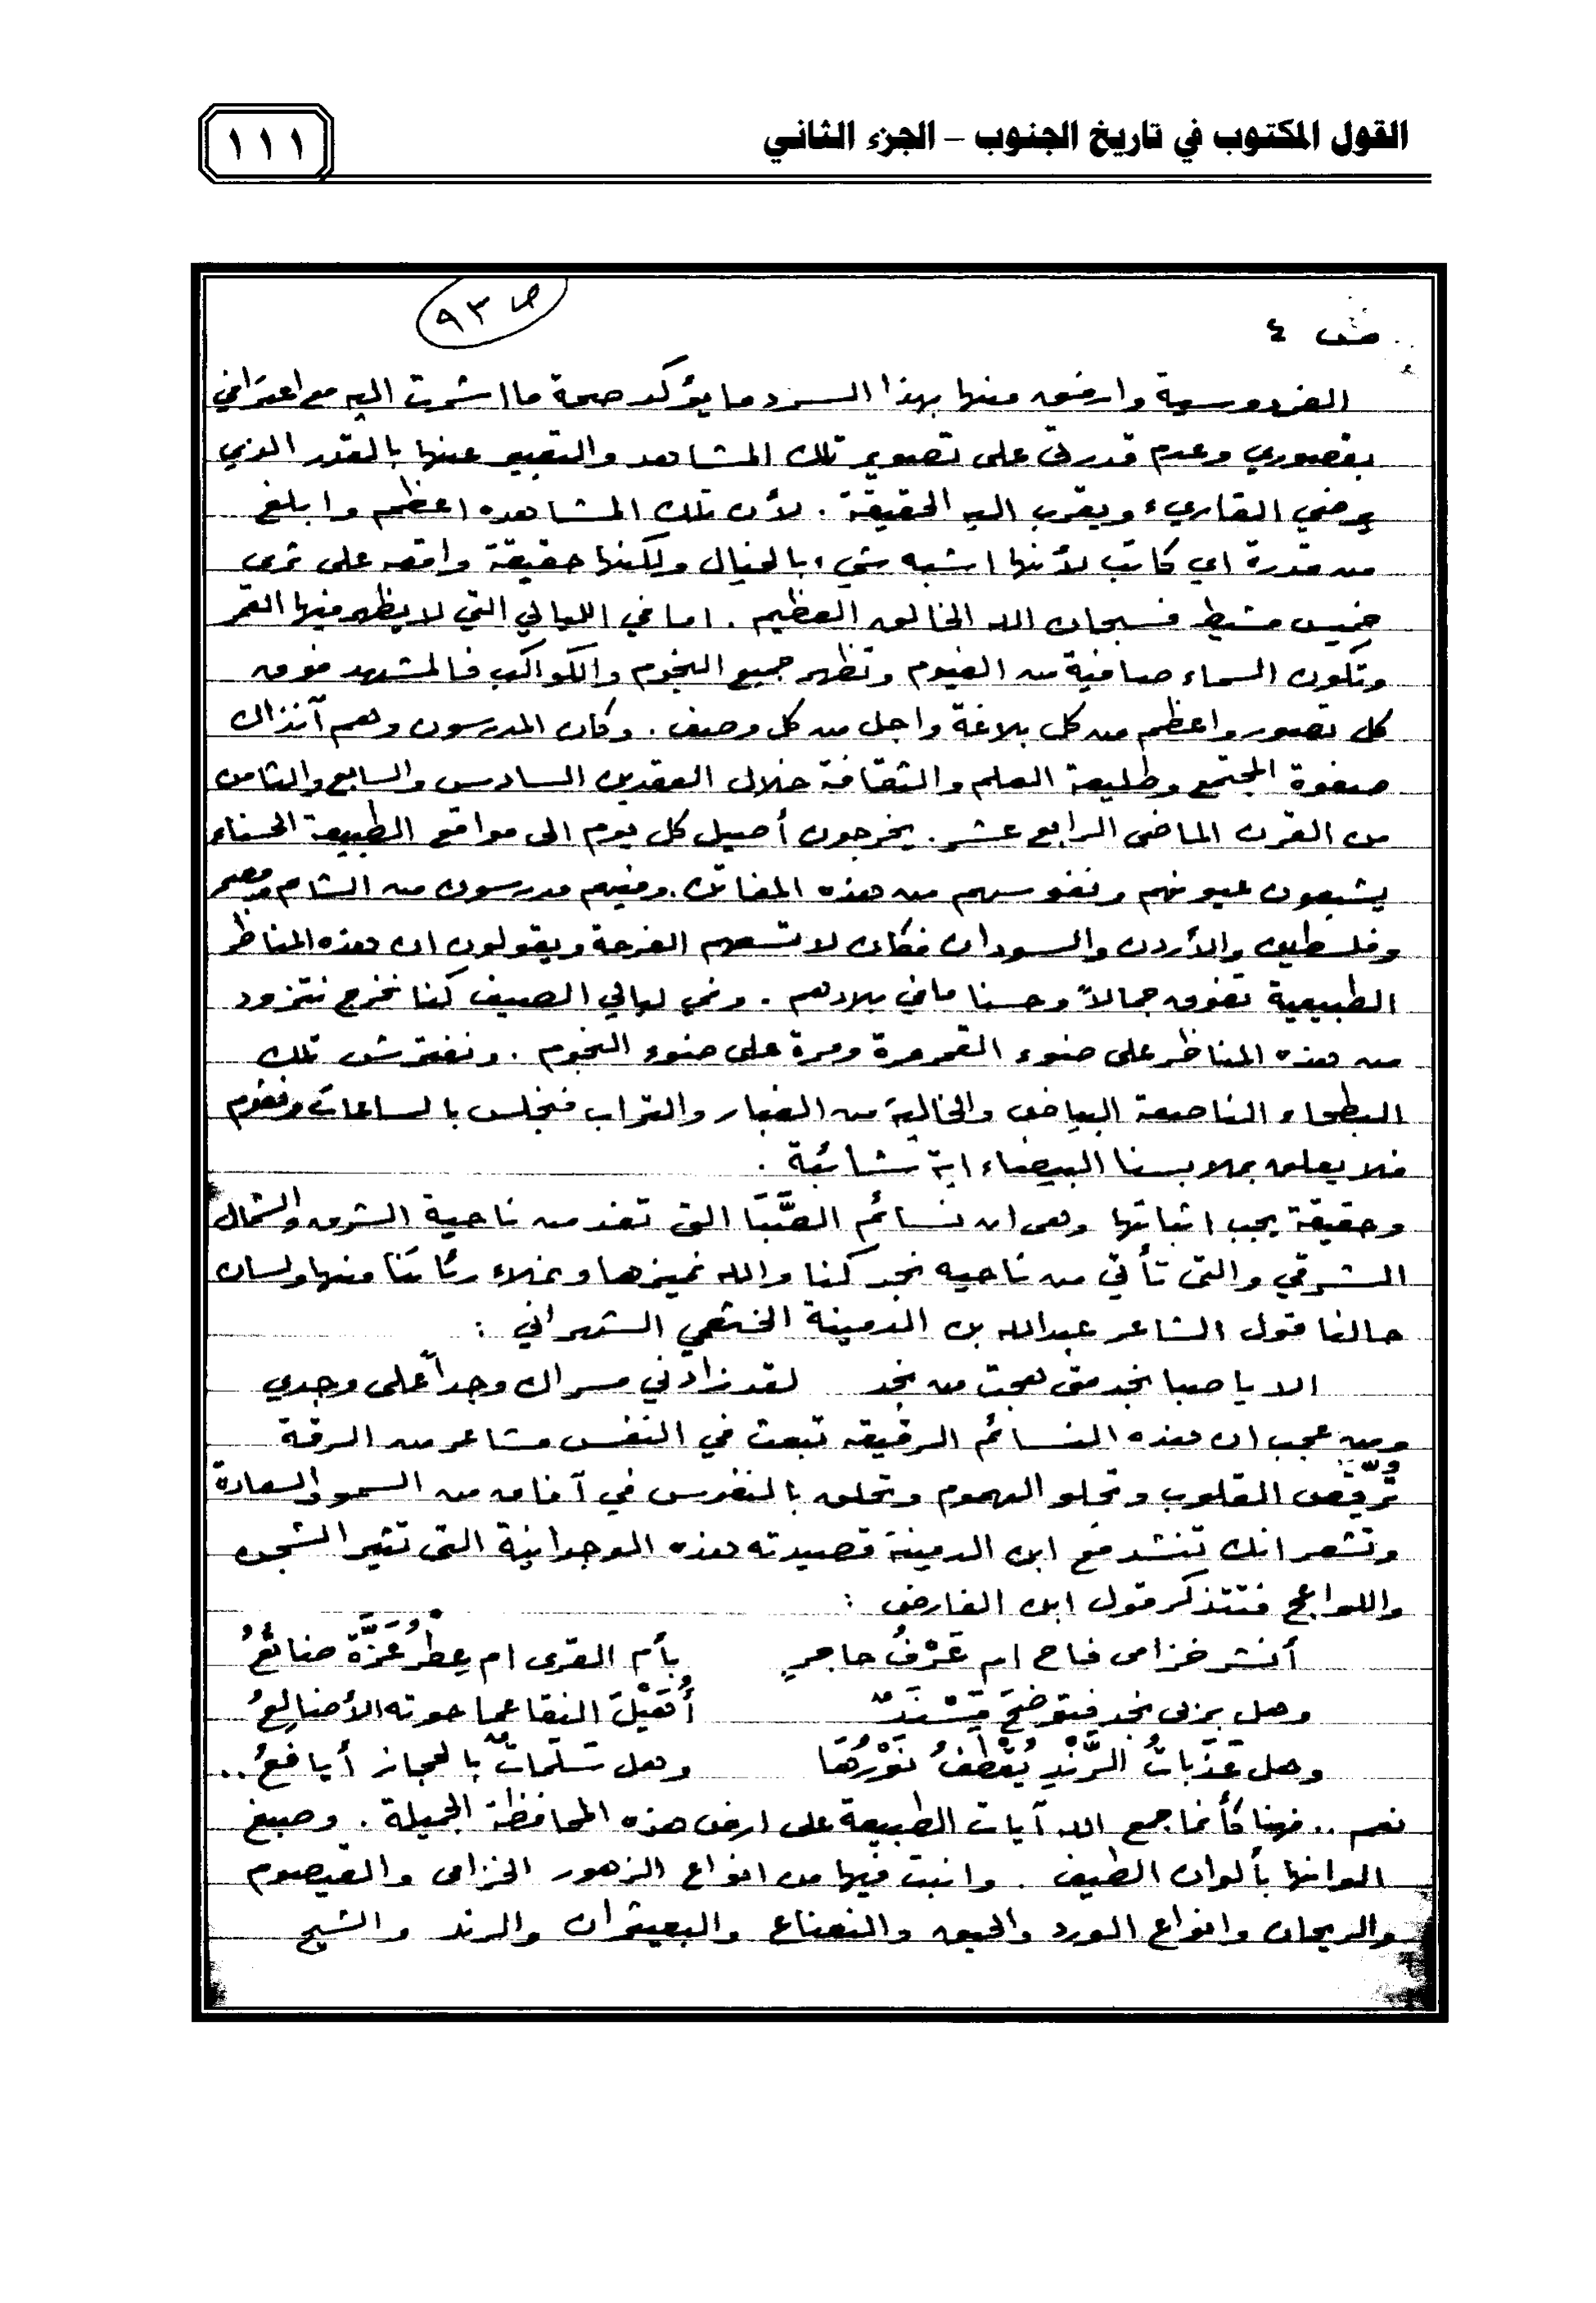 القول المكتوب في تاريخ الجنوب – الجزء الثاني
١١١
ص ٩٣
ص ٤
الفردوسية وارفق منها بهذا السرد ما يؤكد صحة ما اشرت اليه مع اعترافي
بقصوري وعدم قدرتي على تصوير تلك المشاهد والتعبير عنها بالقدر الذي
يرضي القاريء ويقرب اليه الحقيقة . لأن تلك المشاهده اعظم وابلغ
من قدرة اي كاتب لأنها اشبه شيء بالخيال ولكنها حقيقة واقعه على ثرى
خميس مشيط فسبحان الله الخالق العظيم . اما في الليالي التي لا يظهر فيها القمر
وتكون السماء صافية من الغيوم وتظهر جميع النجوم والكواكب فالمشهد فوق
كل تصور واعظم من كل بلاغة واجل من كل وصف . وكان المدرسون وهم آنذاك
صفوة المجتمع وطليعة العلم والثقافة خلال العقدين السادس والسابع والثامن
من القرن الماضى الرابع عشر . يخرجون أصيل كل يوم الى مواقع الطبيعة الحسناء
يشبعون عيونهم ونفوسهم من هذه المفاتن . وفيهم مدرسون من الشام ومصر
وفلسطين والأردن والسودان فكان لا تسعهم الفرحة ويقولون ان هذه المناظر
الطبيعية تفوق جمالاً وحسنا ما في بلادهم . وفي ليالي الصيف كنا نخرج نتزود
من هذه المناظر على ضوء القمر مرة ومرة على ضوء النجوم . ونفترش تلك
البطحاء الناصعة البياض والخالية من الغبار والتراب فنجلس بالساعات ونقوم
فلا يعلق بملابسنا البيضاء اية شائبة .
وحقيقة يجب اثباتها وهى ان نسائم الصَّبَا التى تفد من ناحية الشرق والشمال
الشرقي والتى تأتي من ناحيه نجد كنا والله نميزها ونملاء رئاتنا منها ولسان
حالنا قول الشاعر عبدالله بن الدمينة الخثعمي الشهراني :
الا يا صبا نجد متى هجت من نجد لقد زادني مسراك وجداً على وجدي
ومن عجب ان هذه النسائم الرقيقه تبعث في النفس مشاعر من الرقة
ترقّص القلوب وتجلو الهموم وتحلق بالنفوس في آفاق من السمو والسعادة
وتشعر انك تنشد مع ابن الدمينة قصيدته هذه الوجدانية التى تثير الشجن
واللواعج فتتذكر قول ابن الفارض :
أنشر خزامى فاح ام عَرْفُ حاجرٍ بأم القرى ام عِطْرُ عَزَّةَ ضائعُ
وهل بربى نجد فتوضَحَ مَسْنَدٌ أُهَيْلَ النقا عما حوته الأضالِعُ
وهل عَذَبَاتُ الرَّنْدِ يُقْطَفُ نَوْرُهَا وهل سَلَمَاتٌ بالحجاز أيافعُ ..
نعم .. فهنا كأنما جمع الله آيات الطبيعة على ارض هذه المحافظة الجميلة . وصبغ
الوانها بألوان الطيف . وانبت فيها من انواع الزهور الخزامى والقيصوم
والريحان وانواع الورد والحبق والنعناع والبعيثران والرند والشيح